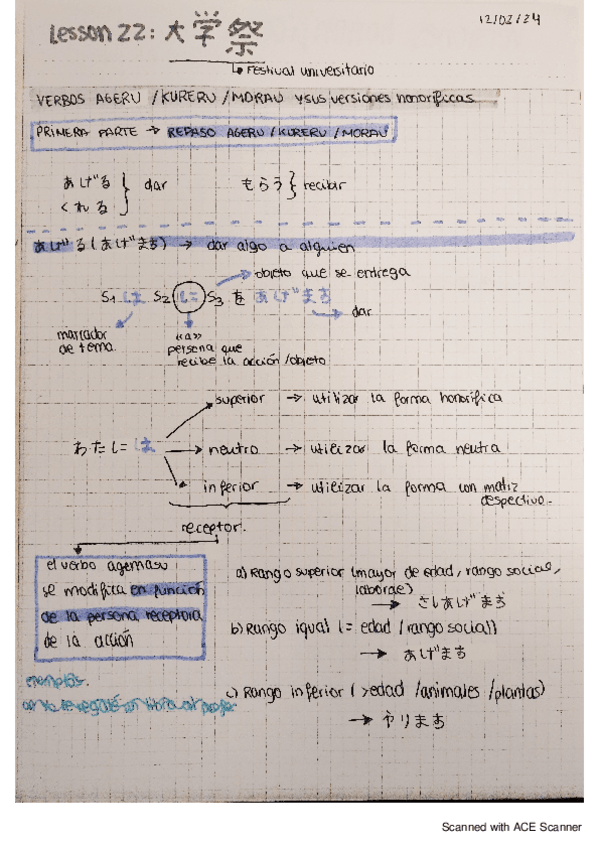 Lesson 22: 大学祭
12/02/24
↳ Festival universitario
VERBOS AGERU / KURERU / MORAU y sus versiones honoríficas
PRIMERA PARTE → REPASO AGERU / KURERU / MORAU
あげる } dar
くれる
もらう } recibir
あげる (あげます) → dar algo a alguien
objeto que se entrega
S1 は S2 に S3 を あげます
dar
marcador de tema.
«a»
persona que
recibe la acción/objeto
superior → utilizar la forma honorífica
わたしは → neutro → utilizar la forma neutra
inferior → utilizar la forma con matiz
despectivo.
receptor.
el verbo agemasu
se modifica en función
de la persona receptora
de la acción
a) Rango superior (mayor de edad, rango social,
laboral)
→ さしあげます
b) Rango igual (= edad / rango social)
→ あげます
c) Rango inferior (>edad /animales /plantas)
→ やります
ejemplos.
Scanned with ACE Scanner